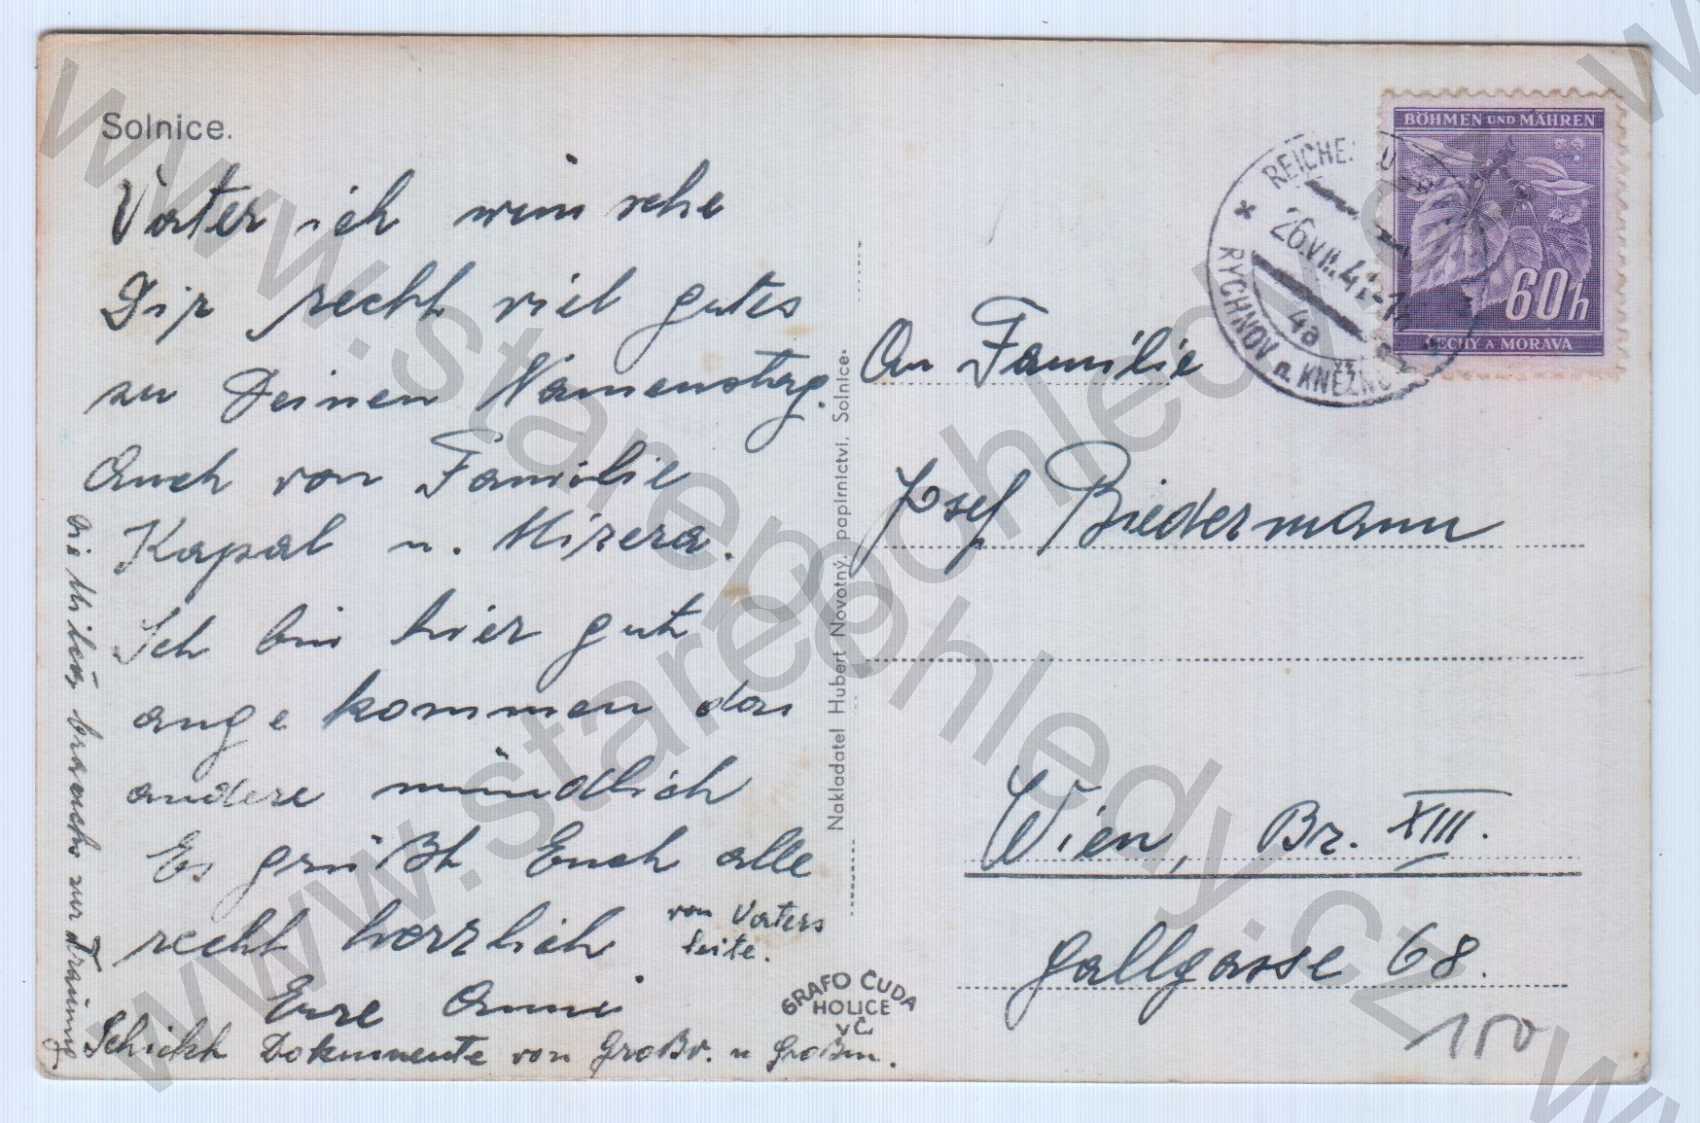 Solnice.
Vater ich wünsche
Dir recht viel gutes
zu Deinen Namenstag.
Auch von Familie
Kapal u. Mizera.
Ich bin hier gut
angekommen das
andere mündlich
Es grüßt Euch alle
recht herzlich
Eure Anni
Schickt Dokumente von Großv. u Großm.
von Vaters
Seite.
die Miluš brauchs zur Trauung
Nakladatel Hubert Novotný, papírnictví, Solnice.
GRAFO ČUDA
HOLICE
v Č.
BÖHMEN UND MÄHREN
60h
ČECHY A MORAVA
26.VII.41
4a
RYCHNOV n. KNĚŽNOU
An Familie
Josef Biedermann
Wien, Br. XIII.
Gallgasse 68.
150
www.starepohledy.cz
www.starepohledy.cz